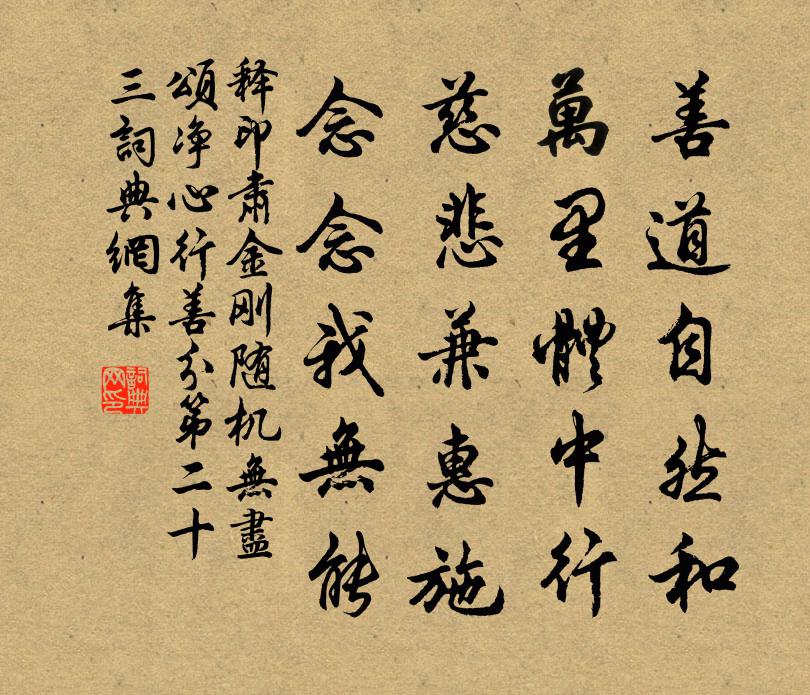 善道自然和
萬里體中行
慈悲兼惠施
念念我無能
释印肅金刚随机無盡
頌净心行善分第二十
三詞典網集
詞典
网印